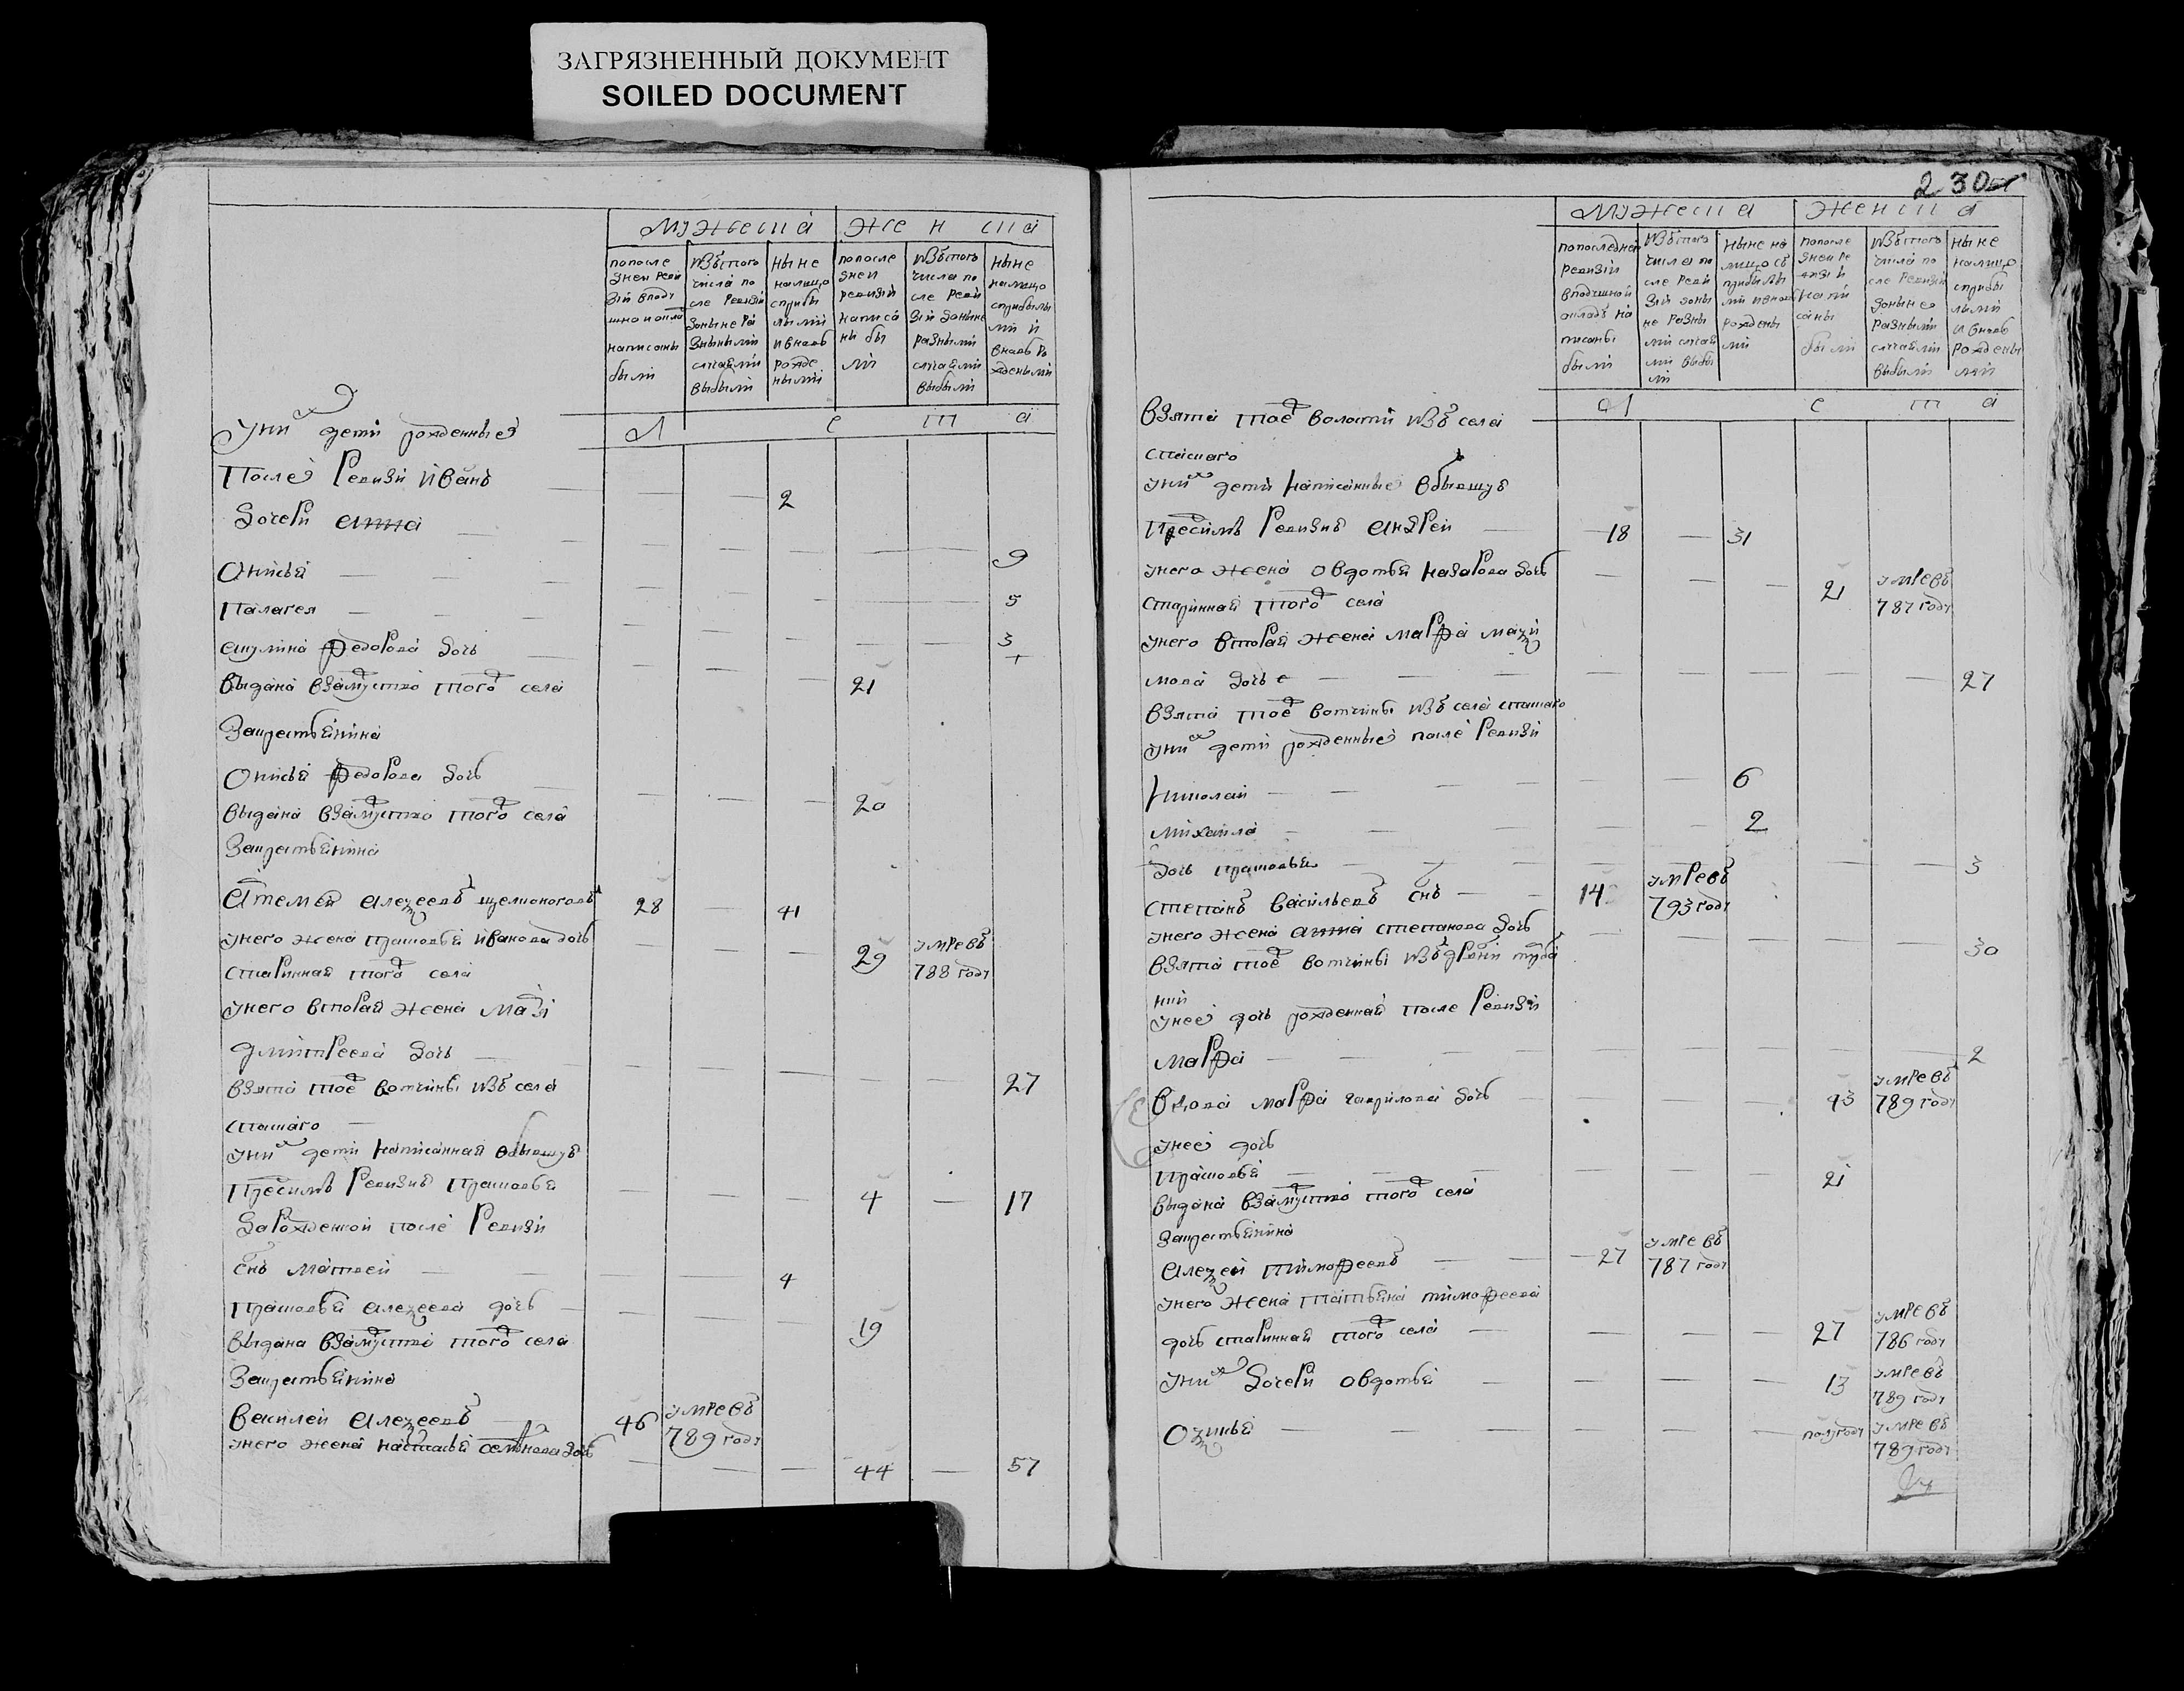 ЗАГРЯЗНЕННЫЙ ДОКУМЕНТ
SOILED DOCUMENT
мужеска женска
пописле дней реви зiи вподу шно написаны были
изътого числа по сле ревизiи доныне ра зными случаями выбыли
ныне налицо сприбы лыми ивновь рожде ными
попосле дней ревизiи написа ны были
изътого числа по сле реви зiи доныне разными случаями выбыли
ныне налицо сприбылы ми и вновь ро ждеными
Л е т а
униxъ дети рожденные
После Ревизи Иванъ 2
дочери анна 9
Анисья 5
Палагея 3
акулина федорова дочь 21
выдана взамуство того села
Закрестьянина
Анисья федорова дочь 20
выдана взамуство того села
Закрестьянина
Артемей алексеевъ 28 41
унего жена прасковья иванова дочь 29 умре въ
старинная того села 788 году
унего вторая жена
дмитреева дочь 27
взята тое вотчины изъ села
спаского
унихъ дети написанная вбывшую
Пресимъ Ревизию прасковья 4 17
Зарожденной после Ревизи
снъ матвей 4
прасковья алексеева дочь 19
выдана взамуство того села
Закрестьянина
василей алексеевъ 46 умре въ 789 году
унего жена настасья семенова дочь 44 57
230
мужеска женска
попоследней ревизiи вподушной окладъ написаны были
изътого числа по сле реви зiи доны не разны ми случая ми выбы ли
ныне на лицо съ прибылы ми ивновь рождены ми
попосле дней ре визiи напи саны были
изътого числа по сле ревизiи доныне разными случаями выбыли
ныне налицо сприбы лыми и вновь рождены ми
Л е т а
взята тое волости изъ села
спаского
унихъ дети написанные вбывшую
Пресимъ Ревизию андрей 18 31
унего жена овдотья назарова дочь 21 умре въ
старинная того села 787 году
унего вторая жена марфа макси
мова дочь 27
взята тое вотчины изъ села спаского
унихъ дети рожденные после Ревизи
Николай 6
михайла 2
дочь прасковья 3
степанъ васильевъ снъ 14 умре въ 793 году
унего жена анна степанова дочь 30
взята тое вотчины изъ
унее дочь рожденная после Ревизи
марфа 2
вдова марфа гаврилова дочь 43 умре въ 789 году
унее дочь
прасковья 21
выдана взамуство того села
Закрестьянина
алексеи тимофеевъ 27 умре въ 787 году
унего жена татьяна тимофеева
дочь старинная того села 27 умре въ 786 году
унихъ дочери овдотья 13 умре въ 789 году
Оксинья полугоду умре въ 789 году